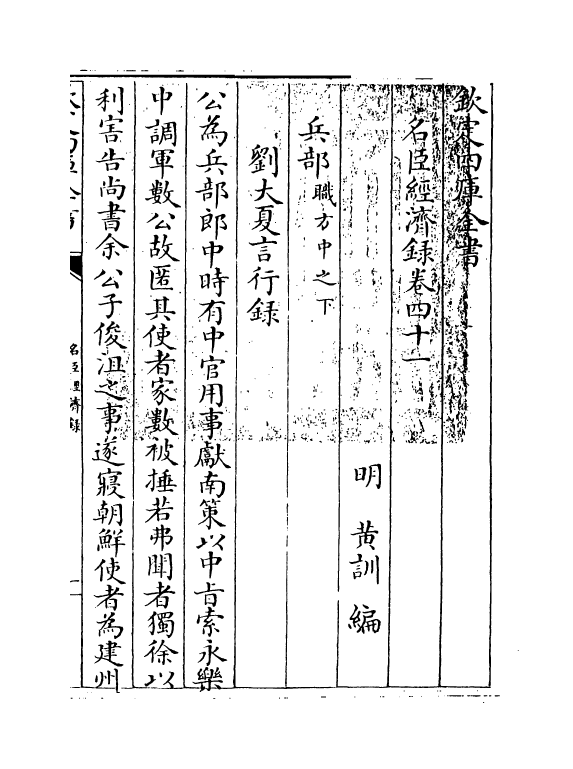 欽定四庫全書
名臣經濟録卷四十一
明 黄訓 編
兵部職方中之下
劉大夏言行録
公為兵部郎中時有中官用事獻南策以中㫖索永樂
中調軍數公故匿其使者家數被捶若弗聞者獨徐以
利害告尚書余公子俊沮之事遂寢朝鮮使者為建州
名臣經濟録